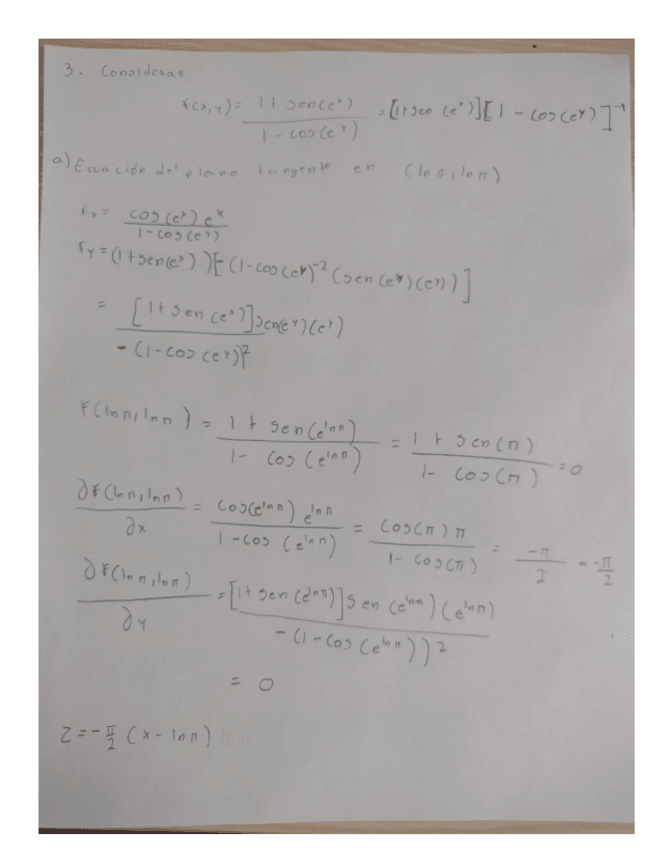 3. Consideras
f(x,y) = \frac{1 + sen(e^x)}{1 - cos(e^y)} = [1 + sen(e^x)][1 - cos(e^y)]^{-1}
a) Ecuación del plano tangente en (ln π, ln π)
f_x = \frac{cos(e^x) e^x}{1 - cos(e^y)}
f_y = (1 + sen(e^x))[-(1 - cos(e^y))^{-2} (sen(e^y)(e^y))]
= \frac{[1 + sen(e^x)] sen(e^y)(e^y)}{-(1 - cos(e^y))^2}
F(ln π, ln π) = \frac{1 + sen(e^{ln π})}{1 - cos(e^{ln π})} = \frac{1 + sen(π)}{1 - cos(π)} = 0
\frac{∂F(ln π, ln π)}{∂x} = \frac{cos(e^{ln π}) e^{ln π}}{1 - cos(e^{ln π})} = \frac{cos(π) π}{1 - cos(π)} = \frac{-π}{2} = -\frac{π}{2}
\frac{∂F(ln π, ln π)}{∂y} = \frac{[1 + sen(e^{ln π})] sen(e^{ln π})(e^{ln π})}{-(1 - cos(e^{ln π}))^2}
= 0
z = -\frac{π}{2} (x - ln π)